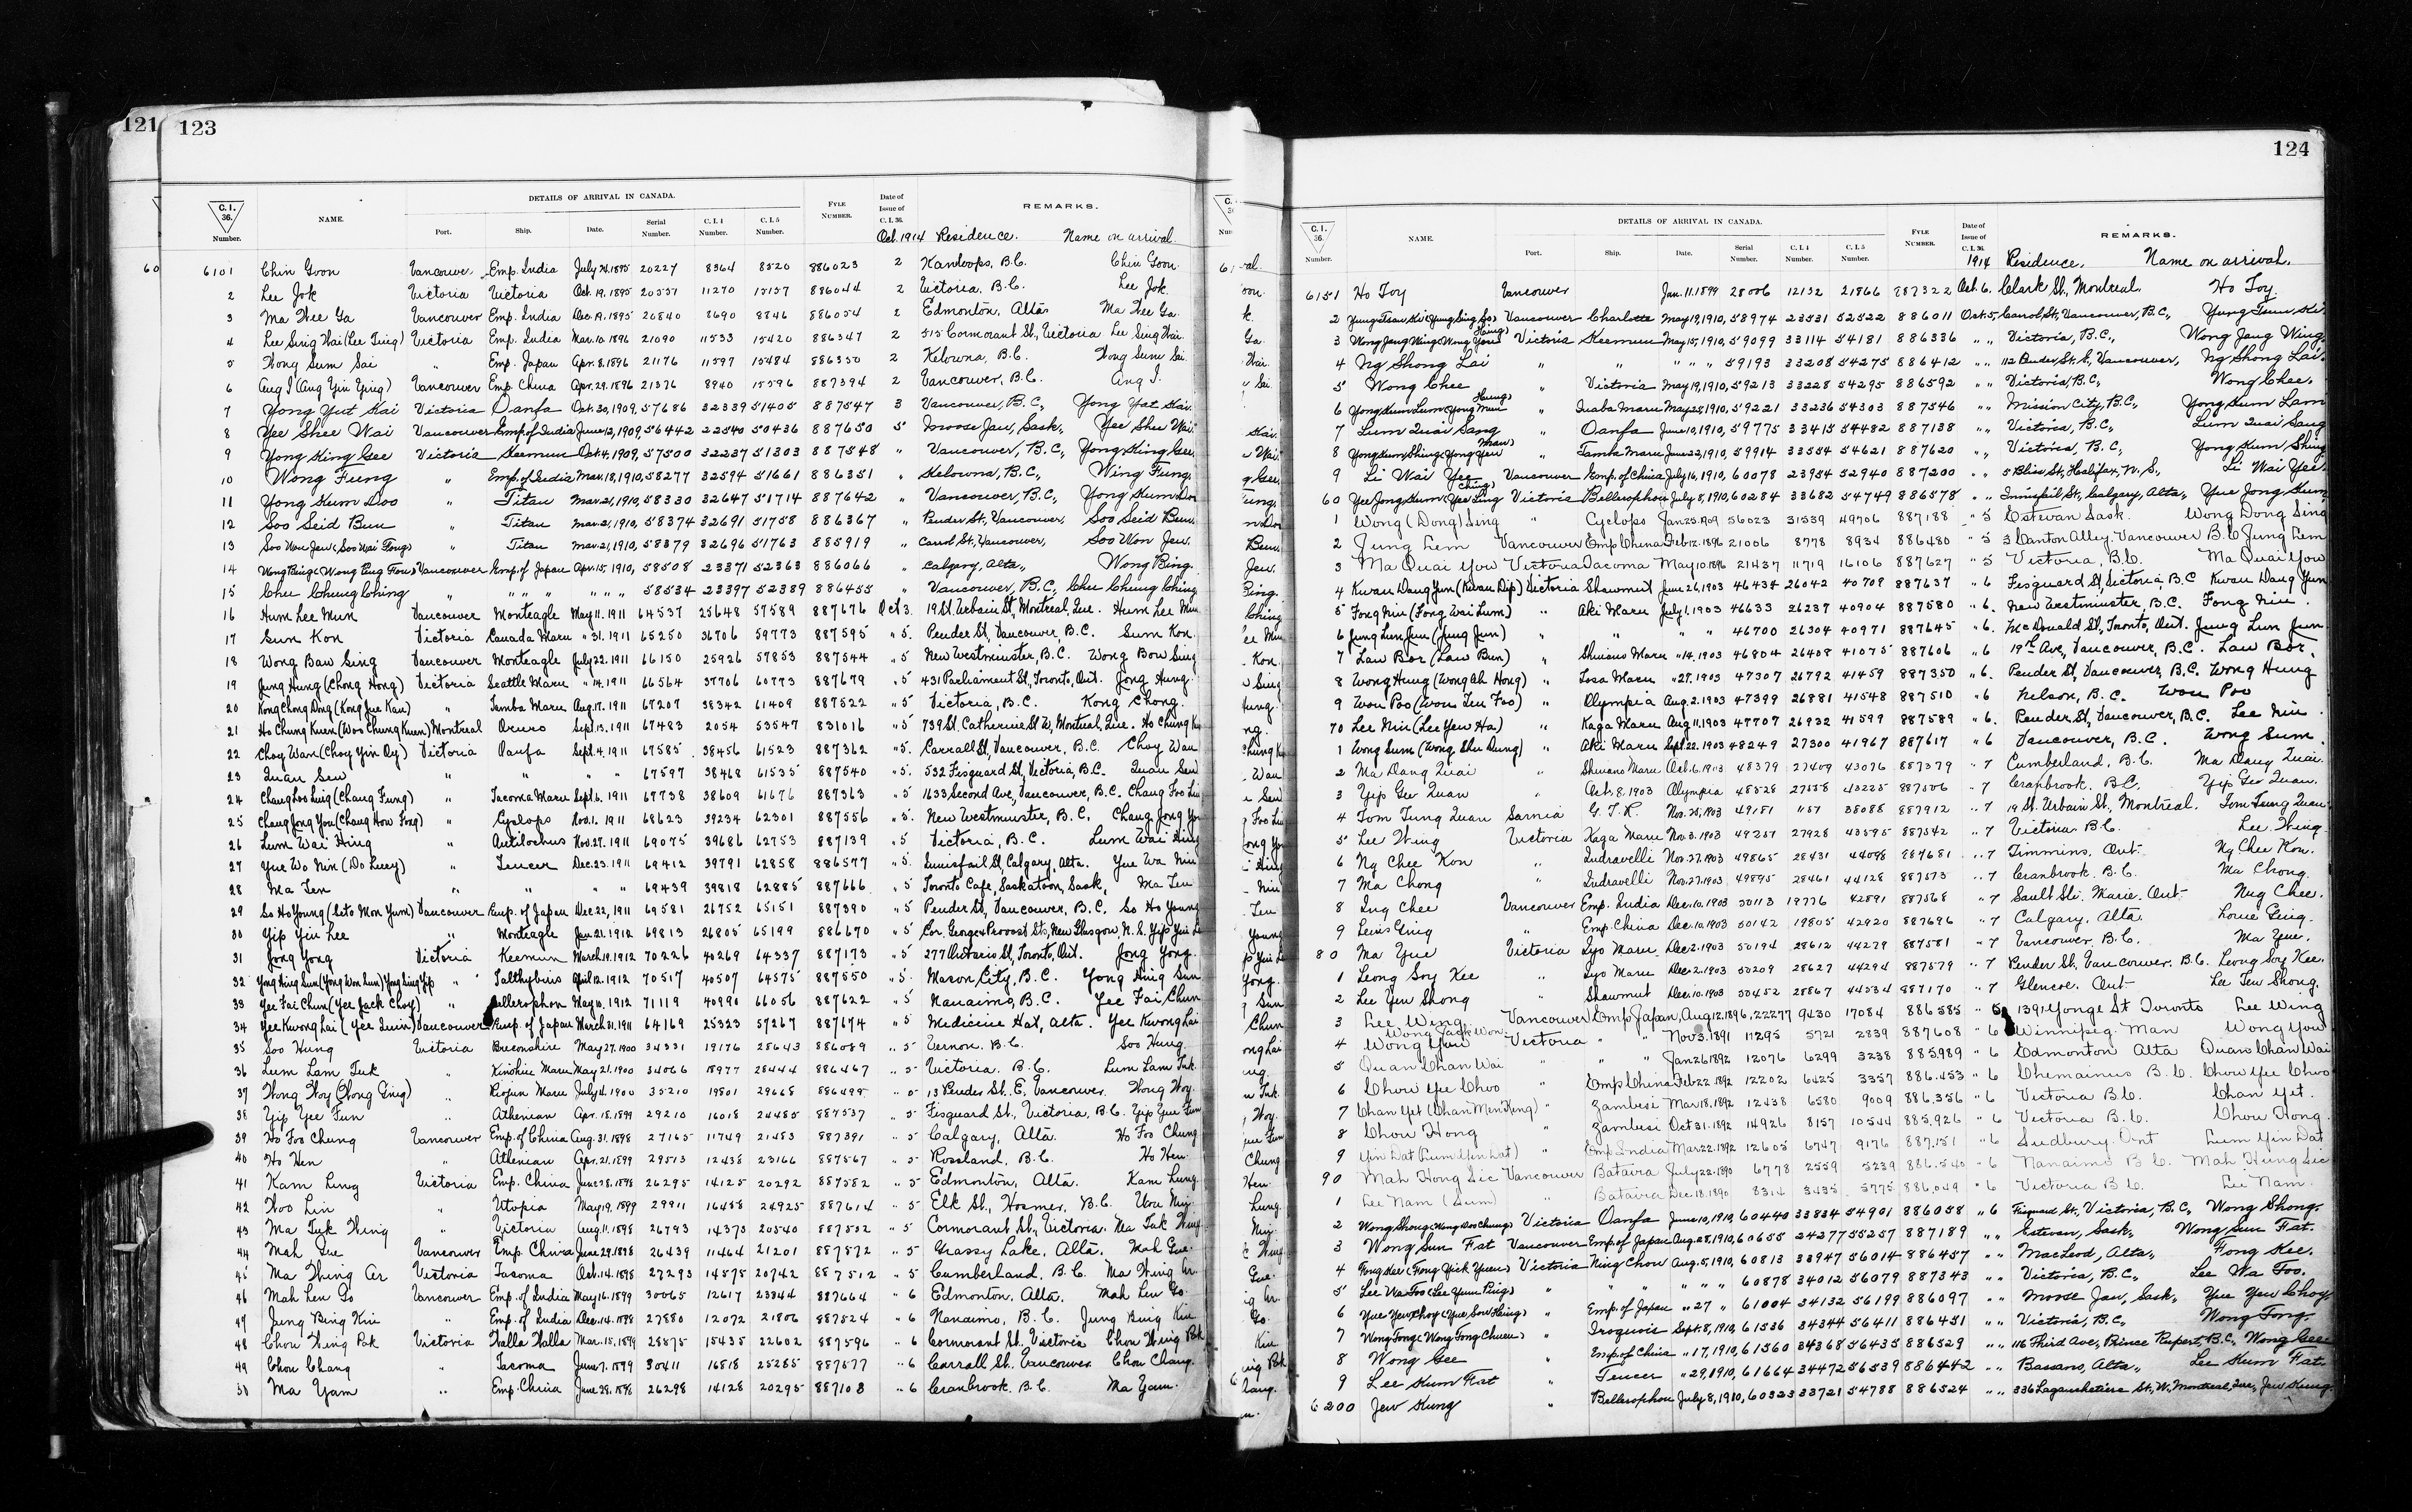 121 123
DETAILS OF ARRIVAL IN CANADA.
C. I. 36. Number. NAME. Port. Ship. Date. Serial Number. C. I. 4 Number. C. I. 5 Number. FYLE NUMBER. Date of Issue of C. I. 36. REMARKS.
Oct. 1914 Residence. Name on arrival.
6101 Chin Goon Vancouver Emp. India July 24. 1895 20227 8364 8520 886023 2 Kamloops, B.C. Chin Goon
2 Lee Jok Victoria Victoria Oct. 19. 1895 20557 11270 15157 886044 2 Victoria. B.C. Lee Jok
3 Ma Wee Ga Vancouver Emp. India Dec. 19. 1895 20840 8690 8846 886054 2 Edmonton, Alta. Ma Wee Ga
4 Lee Sing Wai (Lee Ting) Victoria Emp. India Mar. 10. 1896 21090 11533 15420 886347 2 515 Cormorant St., Victoria Lee Sing Wai
5 Wong Sum Sai " Emp. Japan Apr. 8. 1896 21176 11597 15484 886350 2 Kelowna, B.C. Wong Sum Sai
6 Aug I (Aug Yin Ying) Vancouver Emp. China Apr. 29. 1896 21376 8940 15596 887394 2 Vancouver, B.C. Aug I.
7 Yong Yut Kai Victoria Oanfa Oct. 30, 1909, 57686 32339 51405 887547 3 Vancouver, B.C., Yong Yat Kai
8 Yee Shee Wai Vancouver Emp. of India June 12, 1909, 56442 22540 50436 887650 5 Moose Jaw, Sask., Yee Shee Wai
9 Yong King Gee Victoria Keemun Oct. 4, 1909, 57500 32237 51303 887548 " Vancouver, B.C., Yong King Gee
10 Wong Fung " Emp. of India Mar. 18, 1910, 58277 32594 51661 886351 " Kelowna, B.C., Wing Fung
11 Yong Kum Doo " Titan Mar. 21, 1910, 58330 32647 51714 887642 " Vancouver, B.C., Yong Kum Doo
12 Soo Seid Bun " Titan Mar. 21, 1910, 58374 32691 51758 886367 " Pender St., Vancouver, Soo Seid Bun
13 Soo Won Jew (Soo Wai Fong) " Titan Mar. 21, 1910, 58379 32696 51763 885919 " Carrol St., Vancouver, Soo Won Jew
14 Wong Bing (Wong Bing Fou) Vancouver Emp. of Japan Apr. 15, 1910, 58508 23371 52363 886066 " Calgary, Alta., Wong Bing
15 Chu Chung Ching " " " " " " " 58534 23397 52389 886455 " Vancouver, B.C., Chu Chung Ching
16 Hum Lee Mun Vancouver Monteagle May 11. 1911 64537 25648 57589 887676 Oct 3. 19 St. Urbain St., Montreal, Que. Hum Lee Mun
17 Sum Kon Victoria Canada Maru " 31. 1911 65250 36706 59773 887595 " 5. Pender St., Vancouver, B.C. Sum Kon
18 Wong Baw Sing Vancouver Monteagle July 22. 1911 66150 25926 57853 887544 " 5 New Westminster, B.C. Wong Bow Sing
19 Jung Hung (Chong Hong) Victoria Seattle Maru " 14. 1911 66564 37706 60773 887679 " 5 431 Parliament St., Toronto, Ont. Jong Hung
20 Kong Chong Dong (Kong Jue Kau) " Tamba Maru Aug. 17. 1911 67207 38342 61409 887522 " 5 Victoria, B.C. Kong Chong
21 Ho Chung Kuen (Woo Chung Kuen) Montreal Oruro Sept. 13. 1911 67483 2054 53547 831016 " 5 739 St. Catherine St. W., Montreal, Que. Ho Chung
22 Choy Wan (Choy Yin Oy) Victoria Oanfa Sept. 4. 1911 67585 38456 61523 887362 " 5. Carrall St., Vancouver, B.C. Choy Wan
23 Quan Sew " " " " 67597 38468 61535 887540 " 5. 532 Fisguard St., Victoria, B.C. Quan Sew
24 Chang Loo Luig (Chang Fung) " Tacoma Maru Sept. 6. 1911 67738 38609 61676 887363 " 5 1633 Second Ave., Vancouver, B.C. Chang Foo
25 Chang Jong You (Chang How Fong) " Cyclops Nov. 1. 1911 68623 39234 62301 887556 " 5. New Westminster, B.C. Chang Jong
26 Lum Wai Hing " Antilochus Nov. 27. 1911 69075 39686 62753 887139 " 5 Victoria, B.C. Lum Wai Hing
27 Yue Wo Nin (Do Luey) " Teucer Dec. 23. 1911 69412 39791 62858 886577 " 5. Innisfail St., Calgary, Alta. Yue Wa Nin
28 Ma Ten " " " " 69439 39818 62885 887666 " 5 Toronto Cafe, Saskatoon, Sask. Ma Ten
29 So Ho Young (Seto Mon Yum) Vancouver Emp. of Japan Dec. 22, 1911 69581 26752 65151 887390 " 5 Pender St., Vancouver, B.C. So Ho Young
30 Yip Yin Lee " Monteagle Jan. 21. 1912 69813 26805 65199 886670 " 5 Cor. George & Provost Sts., New Glasgow, N.S. Yip Yin
31 Jong Yong Victoria Keemun March 19. 1912 70226 40269 64337 887173 " 5 277 Ontario St., Toronto, Ont. Jong Yong
32 Yong Hing Sun (Yong Won Lun) Yong Ling Yip " Talthybius April 12. 1912 70517 40507 64575 887550 " 5. Mason City, B.C. Yong Hing Sun
33 Yee Fai Chun (Yee Jack Choy) " Bellerophon May 10. 1912 71119 40990 66056 887622 " 5 Nanaimo, B.C. Yee Fai Chun
34 Yee Kwong Lai (Yee Quin) Vancouver Emp. of Japan March 31. 1911 64169 25323 57267 887674 " 5 Medicine Hat, Alta. Yee Kwong Lai
35 Soo Hung Victoria Breconshire May 27. 1900 34331 19176 28643 886089 " 5 Vernon. B.C. Soo Hung
36 Lum Lam Tuk " Kinshiu Maru May 21. 1900 34066 18977 28444 886467 " 5 Victoria. B.C. Lum Lam Tuk
37 Wong Woy (Wong Ging) " Riojun Maru July 4. 1900 35210 19801 29668 886495 " 5 13 Pender St. E. Vancouver. Wong Woy
38 Yip Yee Fun " Athenian Apr. 18. 1899 29210 16018 24485 887537 " 5 Fisguard St., Victoria, B.C. Yip Yee Fun
39 Ho Foo Chung Vancouver Emp. of China Aug. 31. 1898 27165 11749 21483 887391 " 5 Calgary, Alta. Ho Foo Chung
40 Ho Hen " Athenian Apr. 21. 1899 29513 12438 23166 887567 " 5 Rossland, B.C. Ho Hen
41 Kam Ling Victoria Emp. China June 28. 1898 26295 14125 20292 887582 " 5 Edmonton, Alta. Kam Lung
42 Woo Lin " Utopia May 19. 1899 29911 16458 24925 887614 " 5 Elk St., Hosmer, B.C.
43 Ma Tuk Wing " Victoria Aug. 11. 1898 26793 14373 20540 887532 " 5 Cormorant St., Victoria. Ma Tuk Wing
44 Mah Gue Vancouver Emp. China June 29. 1898 26439 11464 21201 887572 " 5 Grassy Lake, Alta. Mah Gue
45 Ma Wing Ar Victoria Tacoma Oct. 14. 1898 27293 14575 20742 887512 " 5 Cumberland, B.C. Ma Wing Ar
46 Mah Len Go Vancouver Emp. of India May 16. 1899 30065 12617 23344 887664 " 6 Edmonton, Alta. Mah Len Go
47 Jung Bing Kin " Emp. of India Dec. 14. 1898 27880 12072 21806 887524 " 6 Nanaimo, B.C. Jung Bing Kin
48 Chou Wing Pok Victoria Walla Walla Mar. 15. 1899 28875 15435 22602 887596 " 6 Cormorant St., Victoria Chou Wing Pok
49 Chou Chang " Tacoma June 7. 1899 30411 16818 25285 887577 " 6 Carrall St. Vancouver Chou Chang
50 Ma Yam " Emp. China June 28. 1898 26298 14128 20295 887108 " 6 Cranbrook. B.C. Ma Yam
124
DETAILS OF ARRIVAL IN CANADA.
C. I. 36. Number. NAME. Port. Ship. Date. Serial Number. C. I. 4 Number. C. I. 5 Number. FYLE NUMBER. Date of Issue of C. I. 36. REMARKS.
1914 Residence. Name on arrival.
6151 Ho Toy Vancouver Jan. 11. 1899 28006 12132 21866 887322 Oct. 6. Clark St., Montreal. Ho Toy
2 Vancouver Charlotte May 19, 1910, 58974 23531 52522 886011 Oct. 5, Carrol St., Vancouver, B.C.,
3 Wong Jang Wing (Wong Yow Hing) Victoria Keemun May 15, 1910, 59099 33114 54181 886336 " " Victoria, B.C., Wong Jang Wing
4 Ng Shong Lai " " " " " 59193 33208 54275 886412 " " 112 Pender St. E., Vancouver, Ng Shong Lai
5 Wong Chee " Victoria May 19, 1910, 59213 33228 54295 886592 " " Victoria, B.C., Wong Chee
6 Yong Kum Lum (Yong Mun Heung) " Inaba Maru May 25, 1910, 59221 33236 54303 887546 " " Mission City, B.C., Yong Kum Lam
7 Lum Quai Sang " Oanfa June 10, 1910, 59775 33415 54482 887138 " " Victoria, B.C., Lum Quai Sang
8 Yong Kum Shing (Yong Yew Man) " Tamba Maru June 22, 1910, 59914 33554 54621 887620 " " Victoria, B.C., Yong Kum Shing
9 Li Wai Yee Vancouver Emp. of China July 16, 1910, 60078 23954 52940 887200 " " 5 Bliss St., Halifax, N.S., Li Wai Yee
60 Yee Jong Kum (Yee Ling Ching) Victoria Bellerophon July 8, 1910, 60284 33682 54749 886578 " " Innisfail St., Calgary, Alta., Yue Jong Kum
1 Wong (Dong) Sing " Cyclops Jan 25. 1909 56023 31539 49706 887188 " 5 Estevan Sask. Wong Dong Sing
2 Jung Lem Vancouver Emp China Feb 12. 1896 21006 8778 8934 886480 " 5 3 Canton Alley. Vancouver B.C. Jung Lem
3 Ma Quai You Victoria Tacoma May 10. 1896 21437 11719 16106 887627 " 5 Victoria, B.C. Ma Quai You
4 Kwan Dang Yum (Kwan Dip) Victoria Shawmut June 26, 1903 46434 26042 40709 887637 " 6 Fisguard St, Victoria, B.C. Kwan Dang Yum
5 Fong Nin (Fong Wai Lum) " Aki Maru July 1. 1903 46633 26237 40904 887580 " 6. New Westminster, B.C. Fong Nin
6 Jung Lun Jun (Jung Jun) " " " " 46700 26304 40971 887645 " 6. McDonald St., Toronto, Ont. Jung Lun Jun
7 Law Bor (Law Bun) " Shinano Maru " 14, 1903 46804 26408 41075 887606 " 6 19th Ave, Vancouver, B.C. Law Bor
8 Wong Hung (Wong Ah Hong) " Tosa Maru " 27. 1903 47307 26792 41459 887350 " 6. Pender St, Vancouver, B.C. Wong Hung
9 Wou Poo (Wou Teu Foo) " Olympia Aug. 2. 1903 47399 26881 41548 887510 " 6 Nelson, B.C. Wou Poo
70 Lee Nin (Lee Yew Ha) " Kaga Maru Aug 11. 1903 47707 26932 41599 887589 " 6. Pender St, Vancouver, B.C. Lee Nin
1 Wong Sum (Wong Shu Dung) " Aki Maru Sept. 22. 1903 48249 27300 41967 887617 " 6 Vancouver, B.C. Wong Sum
2 Ma Dang Quai " Shinano Maru Oct. 6. 1903 48379 27409 43076 887379 " 7 Cumberland, B.C. Ma Dang Quai
3 Yip Gee Quan " Oct. 8. 1903 Olympia 48528 27558 43225 887506 " 7 Cranbrook. B.C. Yip Gee Quan
4 Tom Tung Quan Sarnia G.T.R. Nov. 25, 1903 49181 1157 38088 887912 " 7 19 St. Urbain St., Montreal. Tom Tung Quan
5 Lee Wing Victoria Kaga Maru Nov. 3. 1903 49257 27928 43595 887542 " 7 Victoria B.C. Lee Wing
6 Ng Chee Kon " Indravelli Nov. 27. 1903 49865 28431 44098 887681 " 7 Timmins. Ont Ng Chee Kon
7 Ma Chong " Indravelli Nov. 27. 1903 49895 28461 44128 887573 " 7 Cranbrook. B.C. Ma Chong
8 Ing Chee Vancouver Emp. India Dec. 10. 1903 50113 19776 42891 887568 " 7 Sault Ste. Marie. Ont Nug Chee
9 Lewis Ging " Emp. China Dec. 10. 1903 50142 19805 42920 887696 " 7 Calgary, Alta. Louie Ging
80 Ma Yue Victoria Iyo Maru Dec. 2. 1903 50194 28612 44279 887581 " 7 Vancouver. B.C. Ma Yue
1 Leong Soy Kee " Iyo Maru Dec. 2. 1903 50209 28627 44294 887579 " 7 Pender St, Vancouver, B.C. Leong Soy Kee
2 Lee Yew Shong " Shawmut Dec. 10. 1903 50452 28867 44534 887170 " 7 Glencoe. Ont Lee Tew Shong
3 Lee Wing Vancouver Emp Japan, Aug 12. 1896, 22277 9430 17084 886585 " 139 Yonge St Toronto Lee Wing
4 Wong You Victoria " " Nov 3. 1891 11295 5721 2839 887608 " 6 Winnipeg. Man Wong You
5 Quan Chan Wai " " " Jan 26 1892 12076 6299 3238 885989 " 6 Edmonton Alta Quan Chan Wai
6 Chow Yee Choo " Emp China Feb 22 1892 12202 6425 3357 886.453 " 6 Chemainus B.C. Chow Yee Choo
7 Chan Yet (Chan Men Keng) " Zambesi Mar 18. 1892 12438 6580 9009 886,356 " 6 Victoria B.C. Chan Yet
8 Chow Hong " Zambesi Oct 31. 1892 14926 8157 10544 885,926 " 6 Victoria B.C. Chow Hong
9 Yin Dat (Lum Yin Dat) " Emp India Mar 22. 1892 12605 6747 9176 887,151 " 6 Sudbury. Ont Lum Yin Dat
90 Mah Hong Sic Vancouver Batavia July 22. 1890 6778 2559 5239 886.540 " 6 Nanaimo B.C. Mah Hung Sic
1 Lee Nam (Sum) " Batavia Dec. 18. 1890 8314 3435 5775 886,049 " 6 Victoria B.C. Lee Nam
2 Wong Shong (Wong Doo Chung) Victoria Oanfa June 10, 1910, 60440 33834 54901 886058 " 6 Fisguard St., Victoria, B.C., Wong Shong
3 Wong Sun Fat Vancouver Emp. of Japan Aug. 28, 1910, 60655 24277 55257 887189 " " Estevan, Sask., Wong Sun Fat
4 Fong Kee (Fong Yick Yuen) Victoria Ning Chow Aug. 5, 1910, 60813 33947 56014 886457 " " MacLeod, Alta., Fong Kee
5 Lee Wa Foo (Lee Yum Ping) " " " " " 60878 34012 56079 887343 " " Victoria, B.C., Lee Wa Foo
6 Yue Yew Choy (Yue Sow Hsing) " Emp. of Japan " 27 " 61004 34132 56199 886097 " " Moose Jaw, Sask., Yue Yew Choy
7 Wong Fong (Wong Fong Chuen) " Iroquois Sept. 8, 1910, 61536 34344 56411 886451 " " Victoria, B.C., Wong Fong
8 Wong Gee " Emp. of China " 17, 1910, 61560 34368 56435 886529 " " 116 Third Ave., Prince Rupert, B.C., Wong Gee
9 Lee Kum Fat " Teucer " 29, 1910, 61664 34472 56539 886442 " " Bassano, Alta., Lee Kum Fat
6200 Jew Kung " Bellerophon July 8, 1910, 60323 33721 54788 886524 " " 336 Lagauchetiere St. W., Montreal, Que., Jew Kung